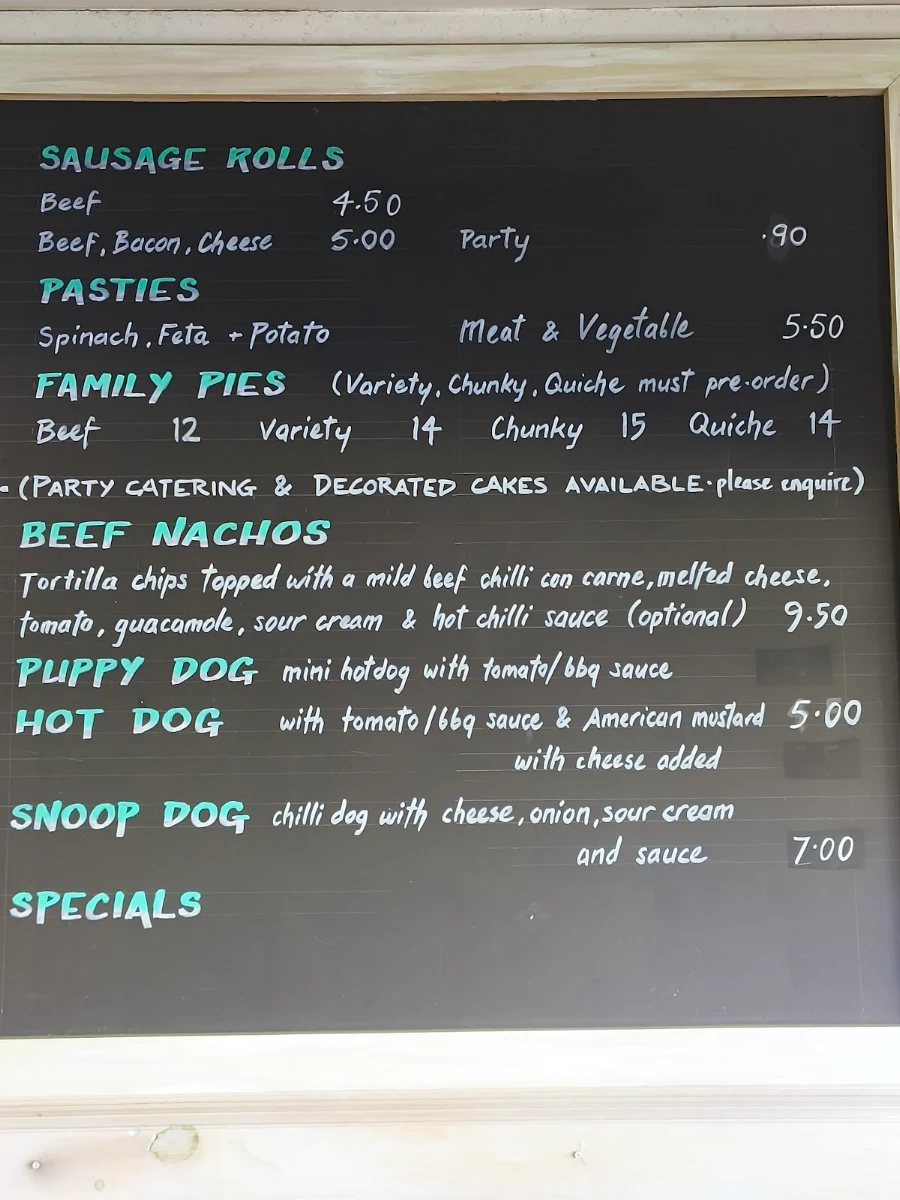 SAUSAGE ROLLS
Beef 4.50
Beef, Bacon, Cheese 5.00 Party .90
PASTIES
Spinach, Feta + Potato Meat & Vegetable 5.50
FAMILY PIES (Variety, Chunky, Quiche must pre-order)
Beef 12 Variety 14 Chunky 15 Quiche 14
- (PARTY CATERING & DECORATED CAKES AVAILABLE · please enquire)
BEEF NACHOS
Tortilla chips topped with a mild beef chilli con carne, melted cheese,
tomato, guacamole, sour cream & hot chilli sauce (optional) 9.50
PUPPY DOG mini hotdog with tomato/bbq sauce
HOT DOG with tomato/bbq sauce & American mustard 5.00
with cheese added
SNOOP DOG chilli dog with cheese, onion, sour cream
and sauce 7.00
SPECIALS